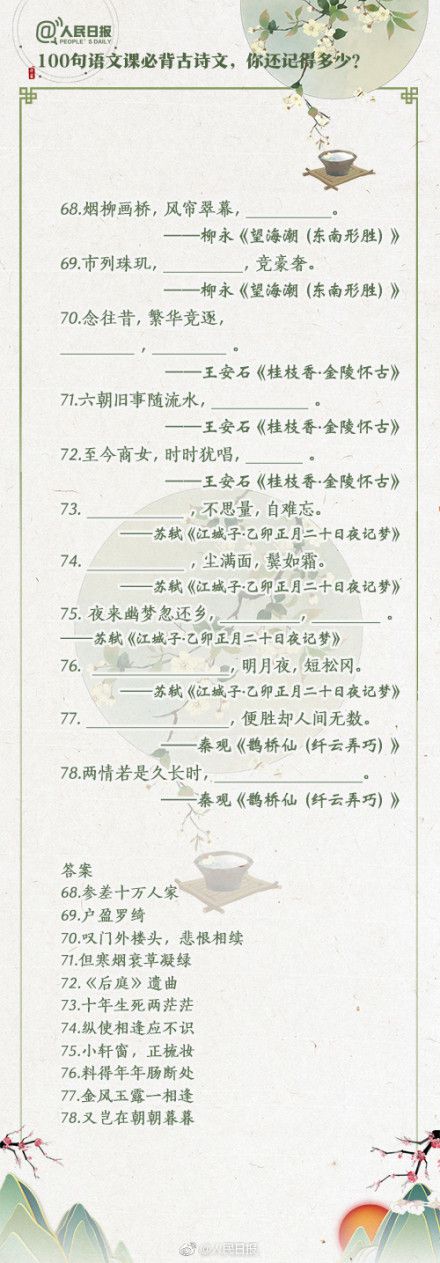 @人民日报
PEOPLE'S DAILY
100句语文课必背古诗文,你还记得多少?
68.烟柳画桥,风帘翠幕,__________。
——柳永《望海潮(东南形胜)》
69.市列珠玑,__________,竞豪奢。
——柳永《望海潮(东南形胜)》
70.念往昔,繁华竞逐,
_________,_________。
——王安石《桂枝香·金陵怀古》
71.六朝旧事随流水,____________。
——王安石《桂枝香·金陵怀古》
72.至今商女,时时犹唱,_______。
——王安石《桂枝香·金陵怀古》
73.____________,不思量,自难忘。
——苏轼《江城子·乙卯正月二十日夜记梦》
74.____________,尘满面,鬓如霜。
——苏轼《江城子·乙卯正月二十日夜记梦》
75.夜来幽梦忽还乡,__________,________。
——苏轼《江城子·乙卯正月二十日夜记梦》
76._________________,明月夜,短松冈。
——苏轼《江城子·乙卯正月二十日夜记梦》
77._________________,便胜却人间无数。
——秦观《鹊桥仙(纤云弄巧)》
78.两情若是久长时,__________________。
——秦观《鹊桥仙(纤云弄巧)》
答案
68.参差十万人家
69.户盈罗绮
70.叹门外楼头,悲恨相续
71.但寒烟衰草凝绿
72.《后庭》遗曲
73.十年生死两茫茫
74.纵使相逢应不识
75.小轩窗,正梳妆
76.料得年年肠断处
77.金风玉露一相逢
78.又岂在朝朝暮暮
@人民日报